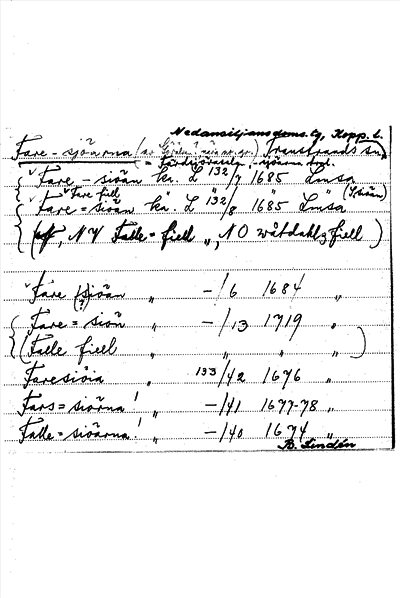 Nedansiljans doms. lg, Kopp. l.
Fare-sjöarna Transtrands sn.
= Färdsjöarna, -sjöarna
Fare-siöän kn. L 132/7 1685 Lmsa
Fare fiell (Siöän)
Fare=siöän kn. L 132/8 1685 Lmsa
NV Falle=fiell „, NO wåtdahlz fiell )
Fare siöän „ -/6 1684 „
(?)
Fare=siön „ -/13 1719 „
(Falle fiell „ „ „ )
Faresiöia „ 133/42 1676 „
Fars=siörna! „ -/41 1677-78 „
Falle=siöarna! „ -/40 1674 „
B. Lindén